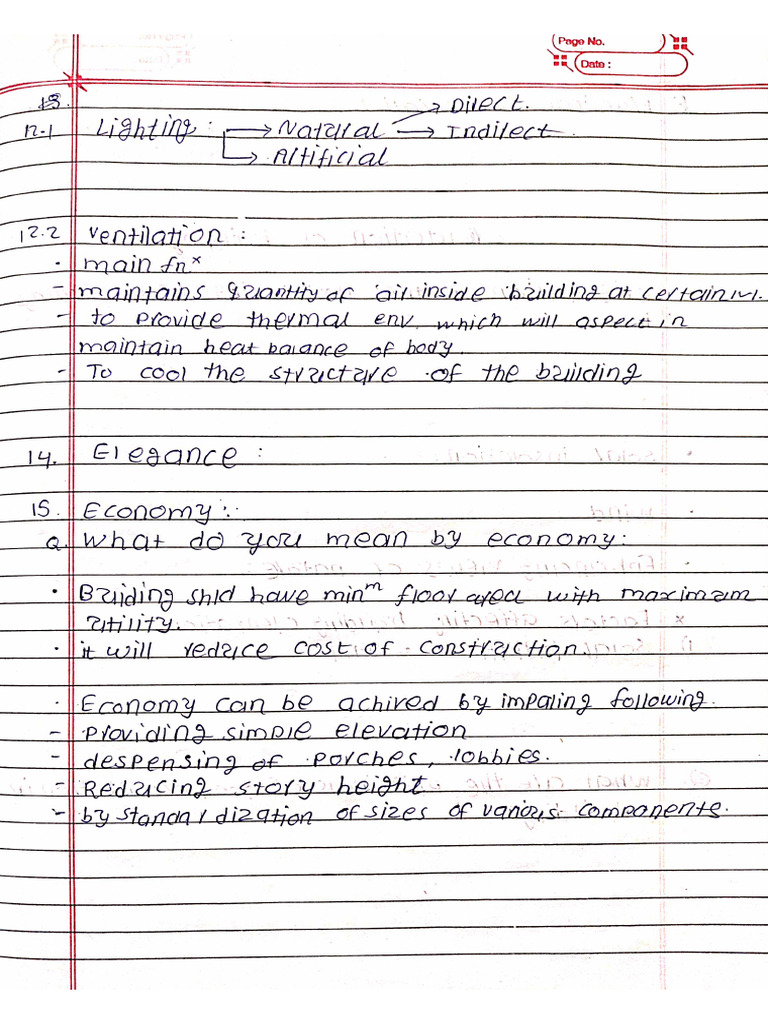 Page No.
Date :
13.
Direct.
12.1 Lighting : → Natural → Indirect
→ Artificial
12.2 Ventilation :
· main fnˣ
- maintains quantity of air inside building at certain lvl.
- to provide thermal env. which will aspect in
maintain heat balance of body.
- To cool the structure of the building
14. Elegance :
15. Economy :
Q. What do you mean by economy :
· Building shld have minᵐ floor area with maximum
utility.
· it will reduce cost of construction.
· Economy can be achived by impaling following.
- Providing simple elevation
- despensing of porches, lobbies.
- Reducing story height
- by standardization of sizes of various components.